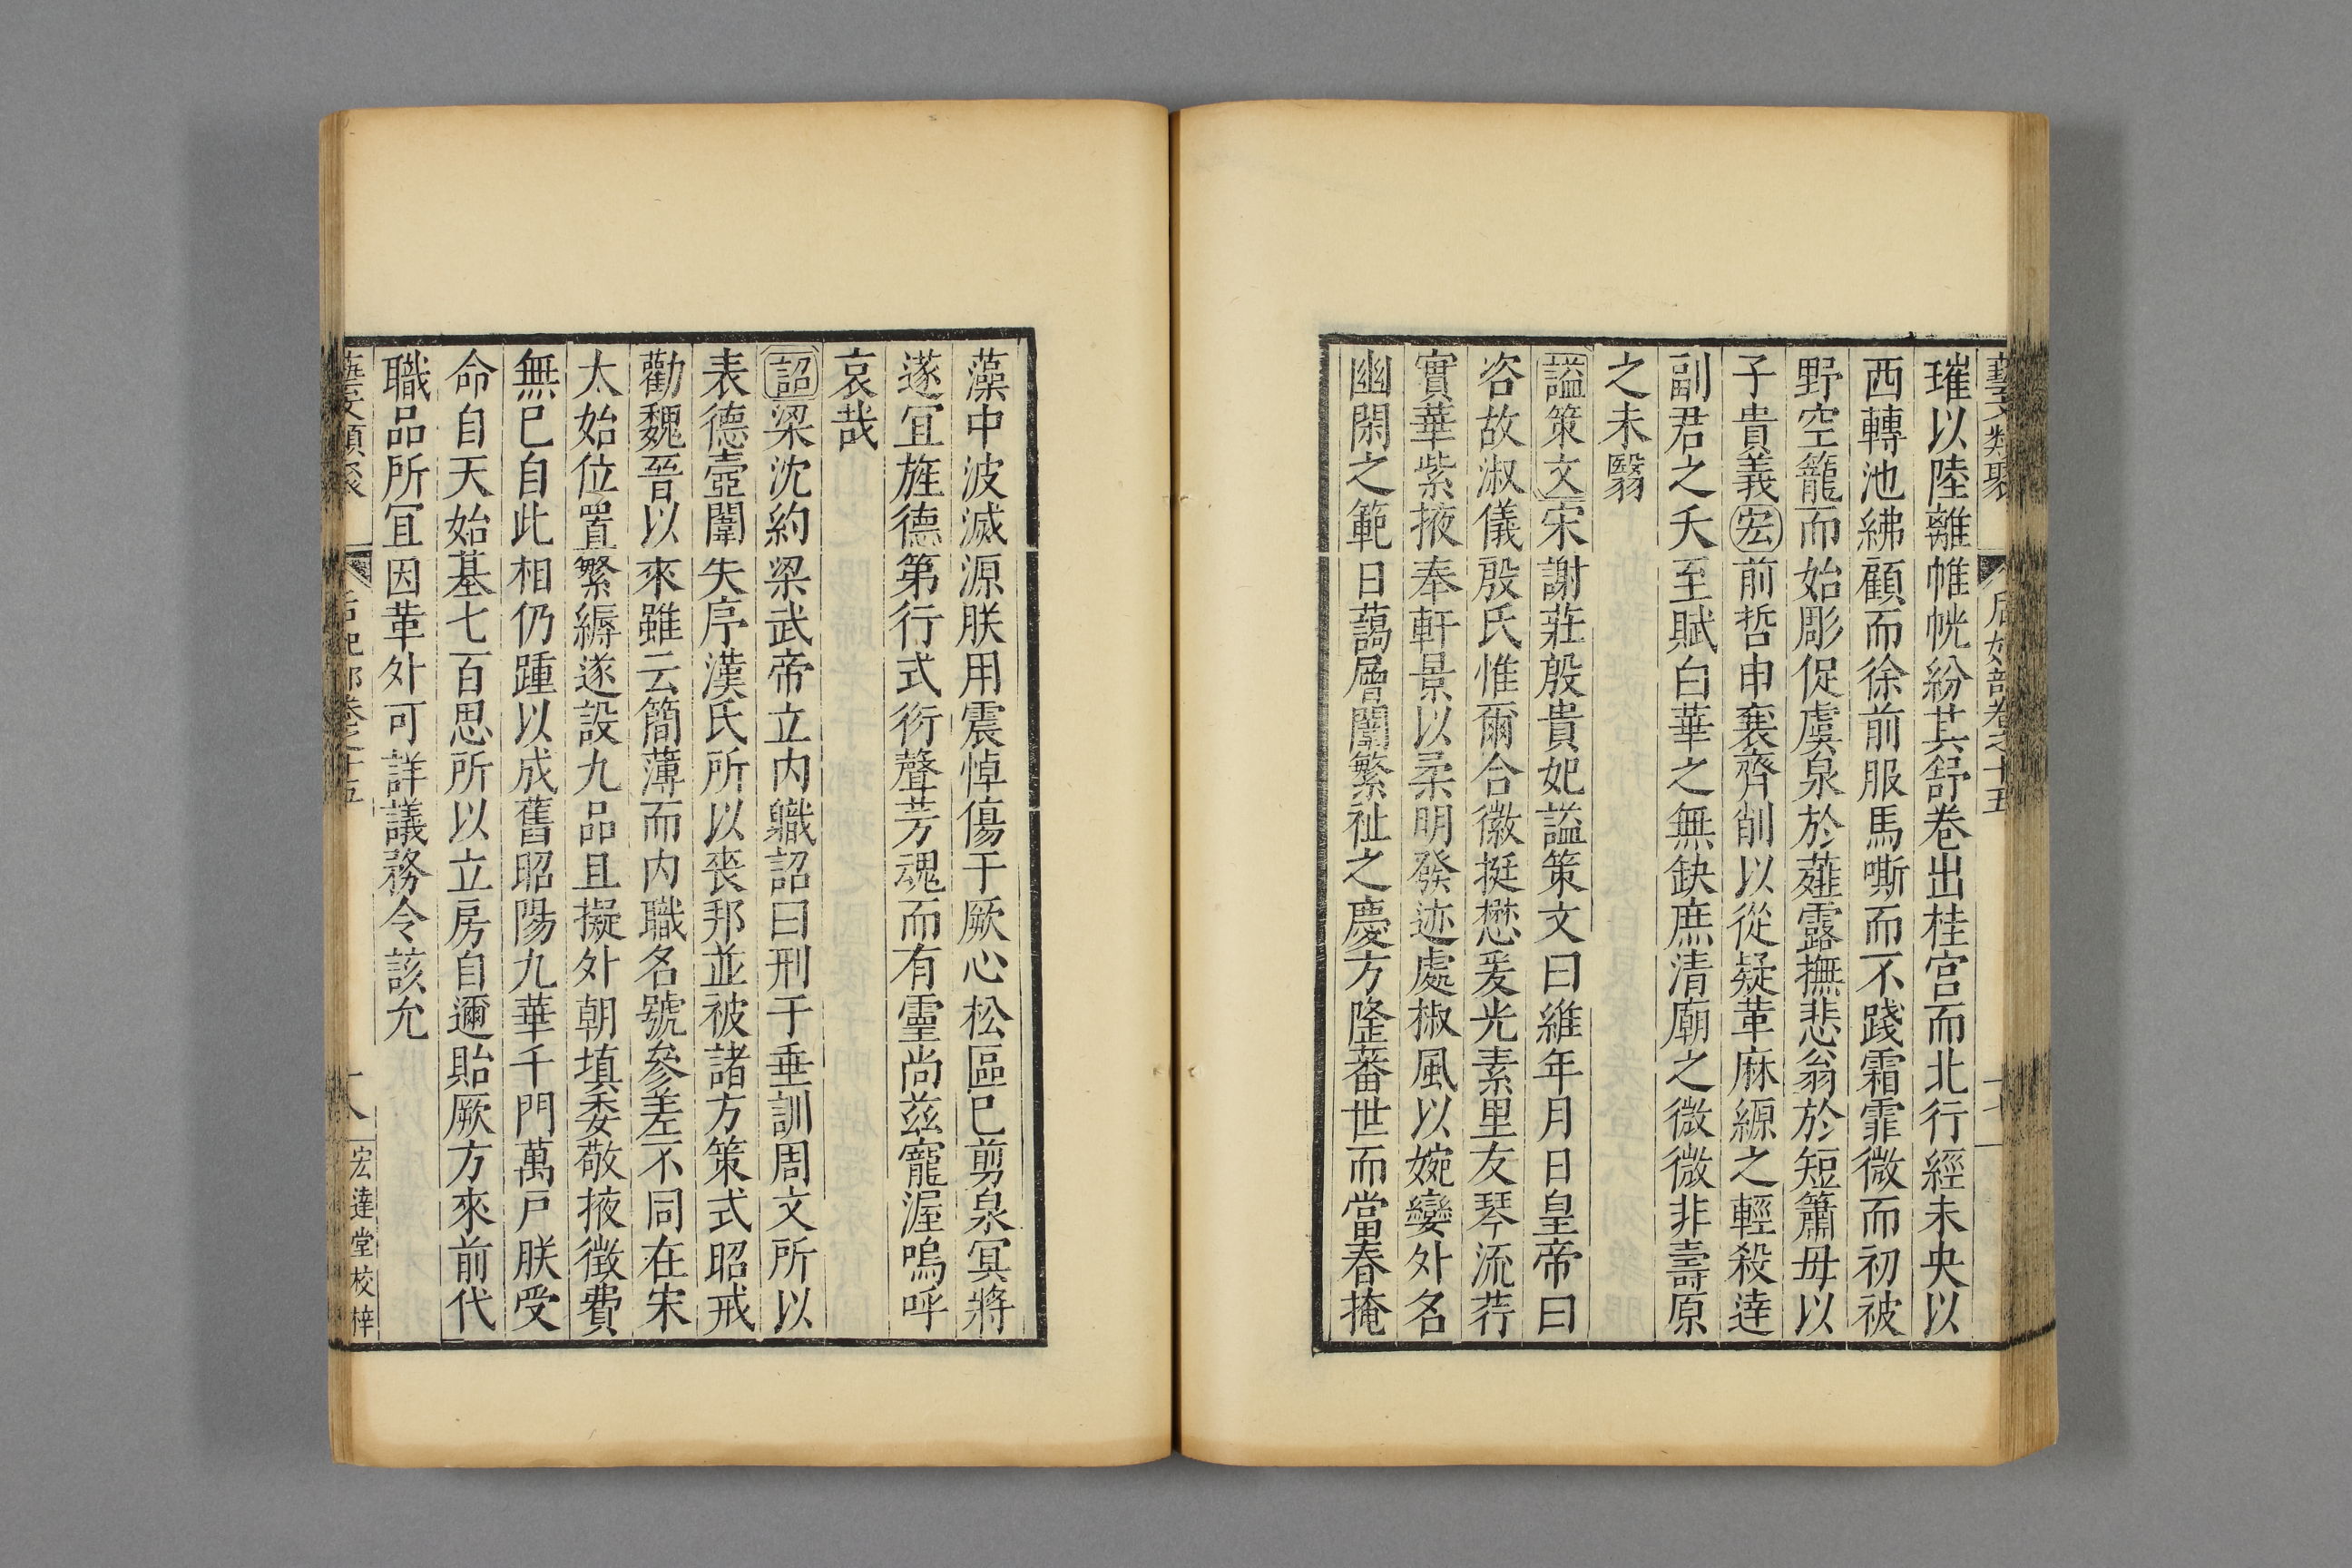 藝文類聚 后妃部卷之十五 十七
璀以陸離帷恍紛其舒卷出桂宮而北行經未央以
西轉池紼顧而徐前服馬嘶而不踐霜霏微而初被
野空籠而始彫促虞泉於薤露撫悲翁於短簫毋以
子貴義宏前哲申衰齊削以從疑革麻縓之輕殺達
副君之夭至賦白華之無缺庶清廟之微微非壽原
之未翳
謚策文宋謝莊殷貴妃謚策文曰維年月日皇帝曰
咨故淑儀殷氏惟爾合徽挺懋爰光素里友琴流荇
實華紫掖奉軒景以柔明發迹處椒風以婉孌外名
幽閑之範日藹層闈繁祉之慶方隆蕃世而當春掩
藻中波滅源朕用震悼傷于厥心松區巳剪泉冥將
遂冝旌德第行式衍聲芳魂而有靈尚茲寵渥嗚呼
哀哉
詔梁沈約梁武帝立内軄詔曰刑于垂訓周文所以
表德壼闈失序漢氏所以喪邦並被諸方策式昭戒
勸魏晉以來雖云簡薄而内職名號參差不同在宋
太始位置繁縟遂設九品且擬外朝填委敬掖徴費
無巳自此相仍踵以成舊昭陽九華千門萬戸朕受
命自天始基七百思所以立房自邇貽厥方來前代
職品所冝因革外可詳議務令該允
藝文類聚 后妃部卷之十五 十八 宏達堂校梓